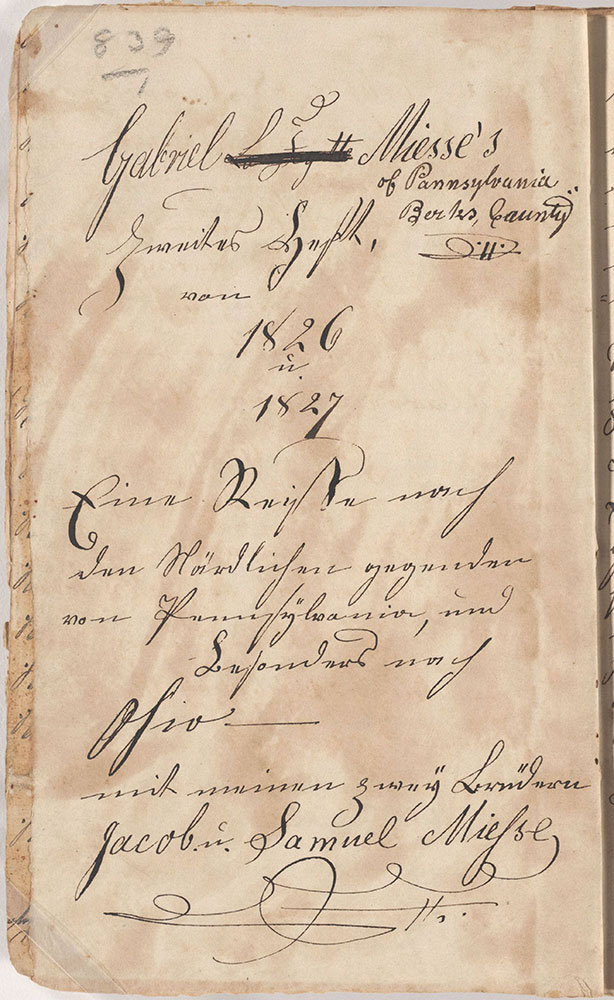 839
Gabriel Miesse's
of Pannsylvania
Berks, Caunty
Zweites Heft,
von
1826
u.
1827
Eine Reysse nach
den Nördlichen gegenden
von Pennsylvania, und
Besonders nach
Ohio —
mit meinen zwey Brüdern
Jacob. u. Samuel Miesse